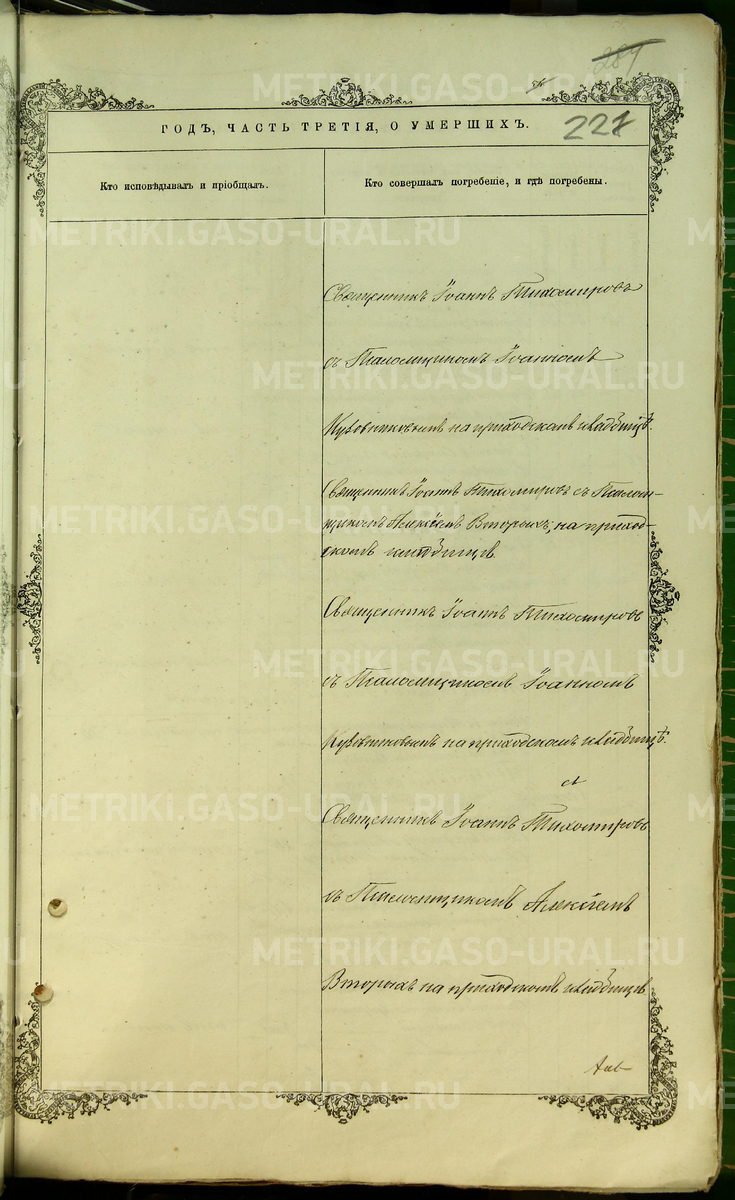 287
227
ГОДЪ, ЧАСТЬ ТРЕТІЯ, О УМЕРШИХЪ.
Кто исповѣдывалъ и пріобщалъ.
Кто совершалъ погребеніе, и гдѣ погребены.
Священникъ Іоаннъ Тихомировъ
съ Псаломщикомъ Іоанномъ
на приходскомъ кладбищѣ.
Священникъ Іоаннъ Тихомировъ съ Псалом-
щикомъ Алексіемъ Вторыхъ, на приход-
скомъ кладбищѣ
Священникъ Іоаннъ Тихомировъ
съ Псаломщикомъ Іоанномъ
на приходскомъ кладбищѣ.
Священникъ Іоаннъ Тихомировъ
съ Псаломщикомъ Алексіемъ
Вторыхъ на приходскомъ кладбищѣ
METRIKI.GASO-URAL.RU